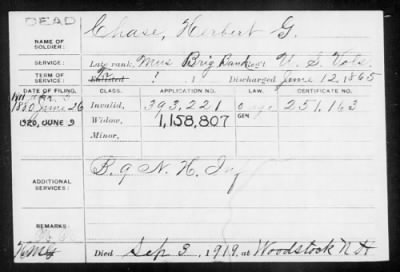 DEAD
NAME OF SOLDIER: Chase, Herbert G.
SERVICE: Late rank, Mus Brig Band Reg't U. S. Vols.
TERM OF SERVICE: Enlisted ? 1 Discharged June 12, 1865
DATE OF FILING. CLASS. APPLICATION NO. LAW. CERTIFICATE NO.
1880 June 26 Invalid, 393,221 251,163
1920, JUNE 9 Widow, 1,158,807 GEN
Minor,
ADDITIONAL SERVICES: B. 9 N. H. Inf
REMARKS:
Died Sep 3, 1919, at Woodstock N H